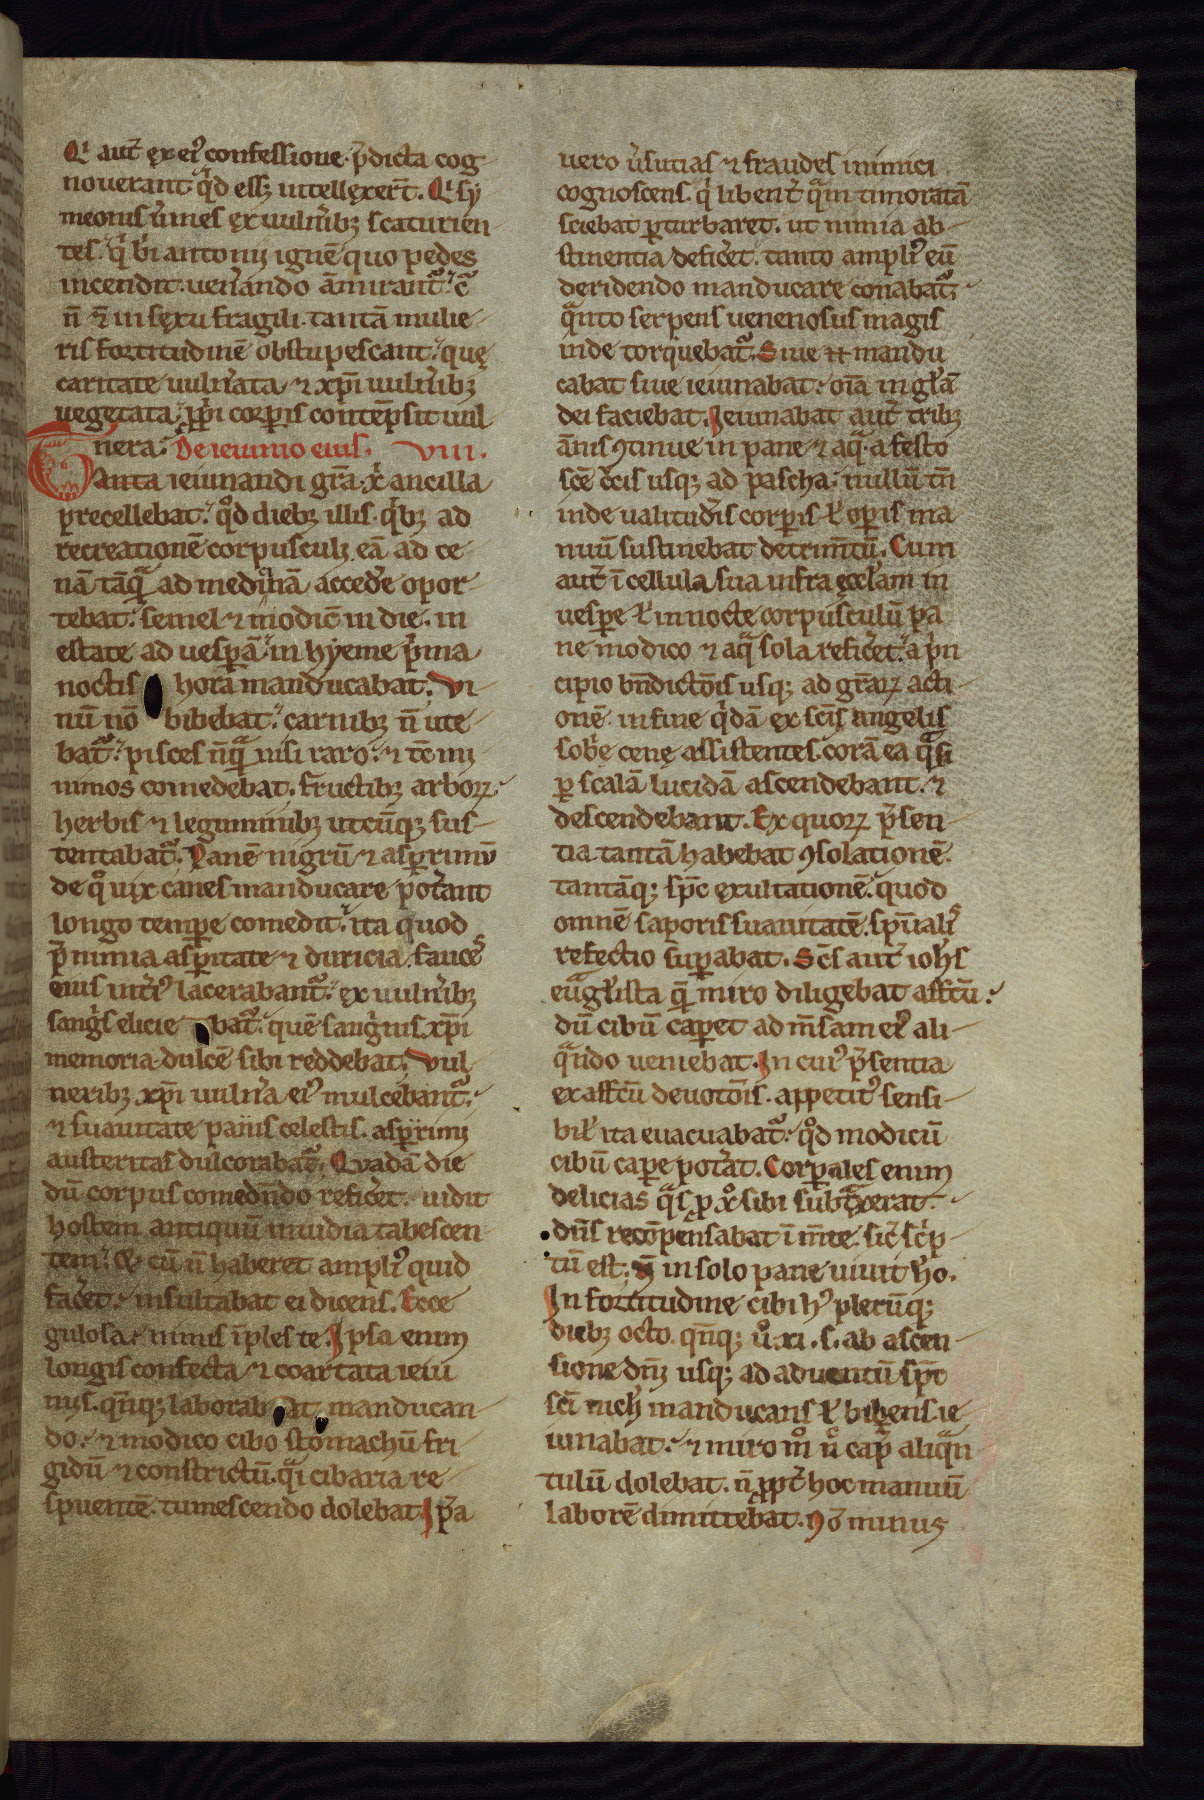 Qi aut̄ ex eiꝰ confessione p̄dicta cog
nouerant qͥd ess; intellexer̄t. Qi sy
meonis u̾mes ex uuln̾ib; scaturien
tes. qͥ bi antonij ignē quo pedes
incendit. uen̾ando āmirant᷑. cͣ
n̄ ⁊ in sexu fragili tantā mulie
ris fortitudinē obstupescant. que
caritate uuln̾ata ⁊ xp̄i uuln̾ib;
uegetata. ꝓprij corꝑis contēpsit uul
nera. De ieiunio eius. VIII.
Tanta ieiunandi gr̄a x̾ ancilla
precellebat. qͦd dieb; illis qͥb; ad
recreationē corpusculi eā ad ce
nā tāqͣ ad medicinā acced̾e opor
tebat. semel ⁊ modic̄ in die. in
estate ad uesꝑā. in hyeme p̾ma
noctis hora manducabat. Vi
nū nō bibebat. carnib; n̄ ute
bat᷑. pisces nūqͣ nisi raro. ⁊ tc̄ mi
nimos comedebat. fructib; arboꝝ
herbis ⁊ leguminib; utcūq; sus
tentabat᷑. Panē nigrū ⁊ asꝑrimū
de qͦ uix canes manducare pot̾ant
longo temꝑe comedit. ita quod
p̄ nimia asꝑitate ⁊ duricia. fauces
eius int̾iꝰ lacerabant᷑. ex uuln̾ib;
sangͥs eliciebat᷑. quē sangͥnis xp̄i
memoria dulcē sibi reddebat. Vul
nerib; xp̄i uuln̾a eiꝰ mulcebant᷑.
⁊ suauitate panis celestis. asꝑrimi
austeritas dulcorabat᷑. Quadā die
dū corpus comedēdo refic̾et. uidit
hostem antiquū inuidia tabescen
tem. Qi cū n̄ haberet ampliꝰ quid
fac̾et. insultabat ei dicens. Ecce
gulosa. nimis īples te. Ipsa enim
longis confecta ⁊ coartata ieiu
niis. qn̄q; laborabat manducan
do. ⁊ modico cibo stomachū fri
gidū ⁊ constrictū. qͣi cibaria re
spuentē. tumescendo dolebat. Ip̄a
uero u̾sutias ⁊ fraudes inimici
cognoscens. qͥ libent̾ qͣm timoratā
sciebat ꝑturbaret. ut nimia ab
stinentia defic̾et. tanto ampliꝰ eū
deridendo manducare conabat᷑.
qͣnto serpens uenenosus magis
inde torquebat᷑. Siue ēt mandu
cabat siue ieiunabat. oīa in gl̾iā
dei faciebat. Ieiunabat aut̄ trib;
ānis ꝯtinue in pane ⁊ aqͣ. a festo
scē c̾cis usq; ad pascha. nullū tn̄
inde ualitudīs corꝑis ł oꝑis ma
nuū sustinebat detrim̄tū. Cum
aut̄ ī cellula sua infra eccl̾am in
uesꝑe ł in nocte corpusculū pa
ne modico ⁊ aqͣ sola refic̾et. a pͥn
cipio bn̄dictōis usq; ad gr̄aꝝ acti
onē. in fine qͥdā ex scīs angelis
sob̾e cene assistentes. corā ea qͣsi
ꝑ scalā lucidā ascendebant. ⁊
descendebant. Ex quoꝝ p̾sen
tia tantā habebat ꝯsolationē.
tantāq; sp̄c exultationē. quod
omnē saporis suauitatē. sp̄ualis
refectio suꝑabat. Scs̄ aut̄ ioh̾s
euāgl̾ista qm̄ miro diligebat affc̄u.
dū cibū caꝑet ad m̄sam eiꝰ ali
qͣndo ueniebat. In cuiꝰ p̾sentia
ex affc̄u deuotōis. appetitꝰ sensi
bil̾ ita euacuabat᷑. qͦd modicū
cibū caꝑe pot̾at. Corꝑales enim
delicias qͣs ꝓ xͦ sibi subtraxerat.
dn̄s recōpensabat ī m̄te. sic̾ sc̾p
tū est. Nō in solo pane uiuit ho̾.
In fortitudine cibi hꝰ plerūq;
dieb; octo. qn̄q; uͦ. xi. s. ab ascen
sione dn̄i usq; ad aduentū sp̄c
scī nich̾ manducans ł bibens ie
iunabat. ⁊ miro mͦ nͨ cap̄ aliqͣn
tulū dolebat. n̄ ꝓpt̾ hoc manuū
laborē dimittebat. Nō minus